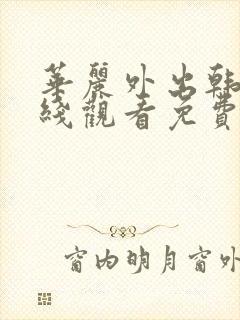 華麗外出韓
綫觀看免費
窗内明月窗外